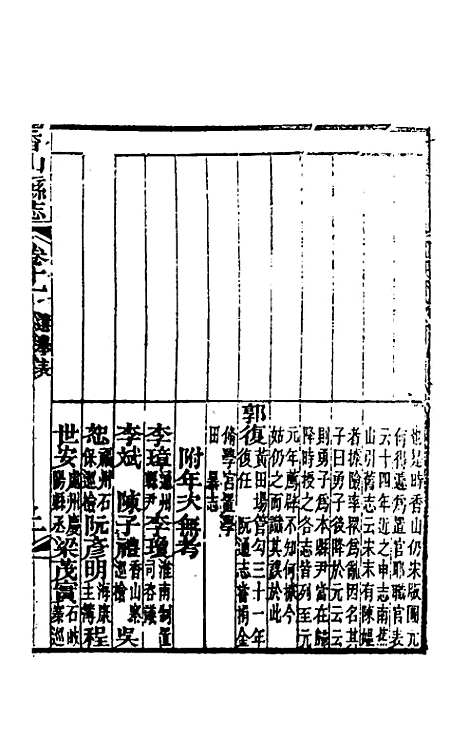 也是時香山仍宋版圖元
何得遽爲置官耶職官表
云十四年近之申志南蕉
山引舊志云宋末有陳媪
者據險率衆爲亂因名其
子曰勇子後降於元云云
則勇子爲本縣尹當在歸
降時授之各志皆列至元
元年薦辟不知何據今
姑仍之而識其誤於此
郭復黃田場管勾三十一年
復任 阮通志 嘗捐金
脩學宮置學
田 暴志
附年次無考
李璋連州縣尹李瓊淮南制置司咨議
李斌 陳子禮香山寨巡檢 吳
恕福州石保巡檢阮彥明海康主簿 程
世安瀘州慶陽縣丞梁茂實石岐寨巡
香山縣志 卷十一 選舉表